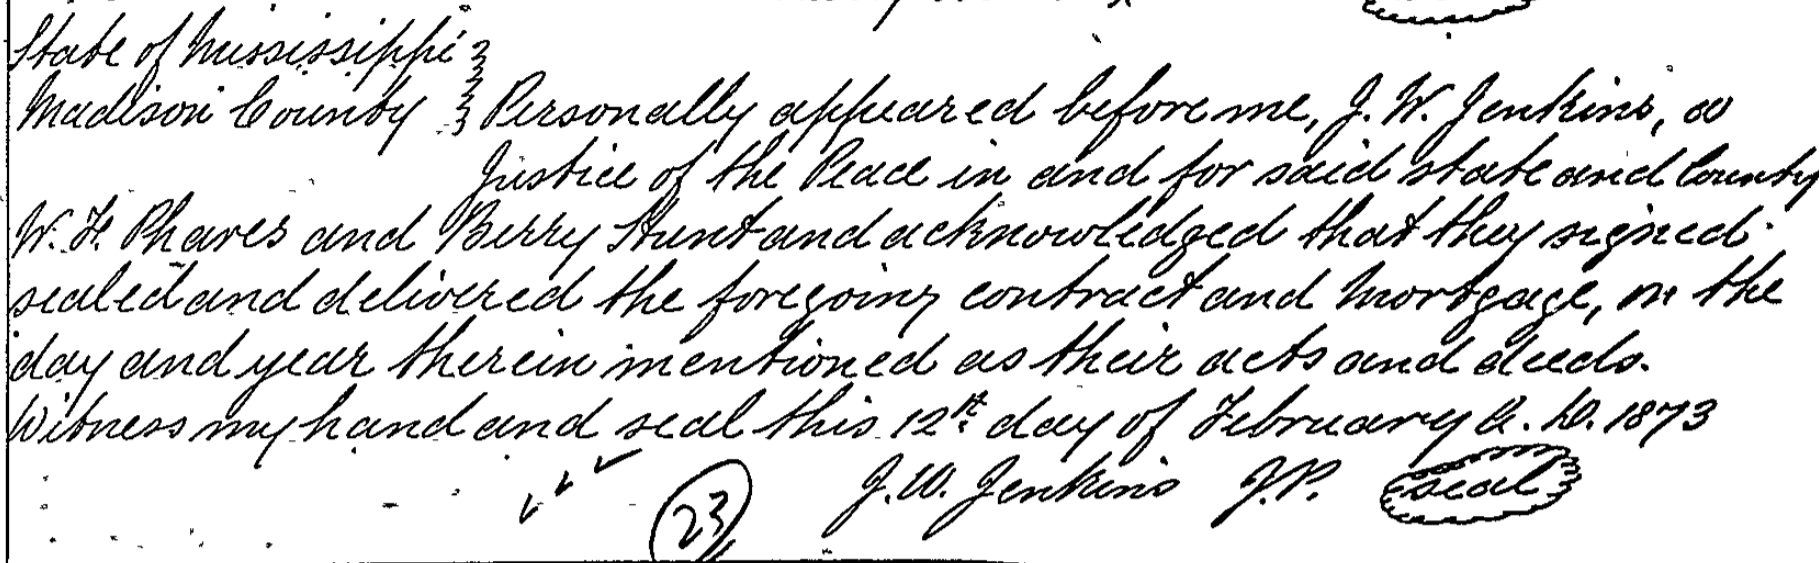 State of Mississippi }
Madison County } Personally appeared before me, J. W. Jenkins, a
Justice of the Peace in and for said state and County
W. H. Phares and Berry Hunt and acknowledged that they signed
sealed and delivered the foregoing contract and mortgage, on the
day and year therein mentioned as their acts and deeds.
Witness my hand and seal this 12th day of February A. D. 1873
J. W. Jenkins J.P. seal
23